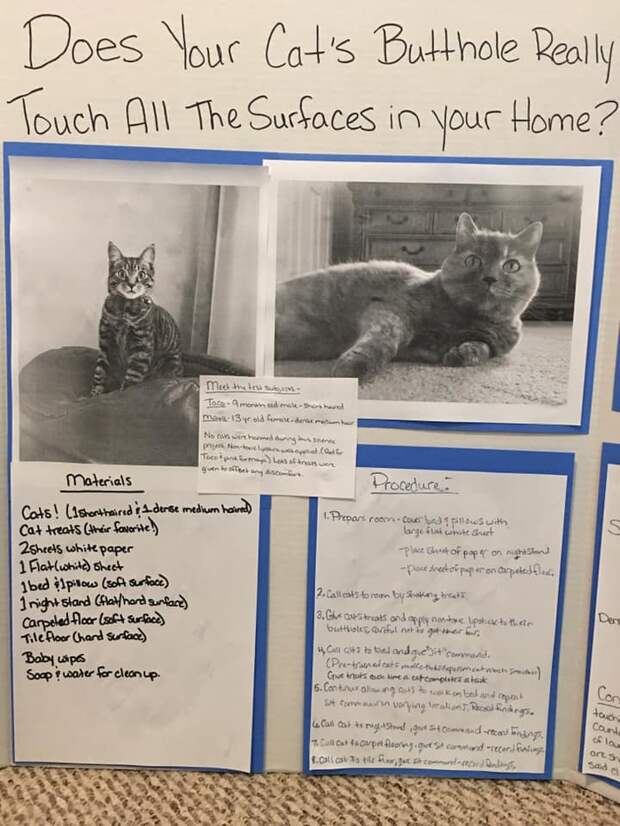 Does Your Cat's Butthole Really
Touch All The Surfaces in your Home?
Meet the test subjects-
Taco- 9 months old male - short haired
13 yr. old female - dense medium hair
No cats were harmed during this science
project. Non-toxic lipstick was applied. (Red for
Taco & pink for ) Lots of treats were
given to offset any discomfort.
Materials
Cats! (1 shorthaired & 1 dense medium haired)
Cat treats (their favorite!)
2 sheets white paper
1 Flat (white) sheet
1 bed & 1 pillow (soft surface)
1 night stand (flat/hard surface)
Carpeted floor (soft surface)
Tile floor (hard surface)
Baby wipes
Soap & water for clean up.
Procedure:
1. Prepare room - cover bed & pillows with
large flat white sheet
- place sheet of paper on nightstand
- place sheet of paper on carpeted floor.
2. Call cats to room by shaking treats
3. Give cats treats and apply non toxic lipstick to their
buttholes, careful not to get their fur.
4. Call cats to bed and give "Sit" command.
(Pre-trained cats make this experiment much smoother)
Give treats each time a cat completes a task
5. Continue allowing cats to walk on bed and repeat
sit command in varying locations. Record findings.
6. Call cat to nightstand, give sit command - record findings.
7. Call cat to carpet flooring, give sit command - record findings
8. Call cat to tile floor, give sit command - record findings.
S
Den
Con
touch
Count
of lou
are sh
said